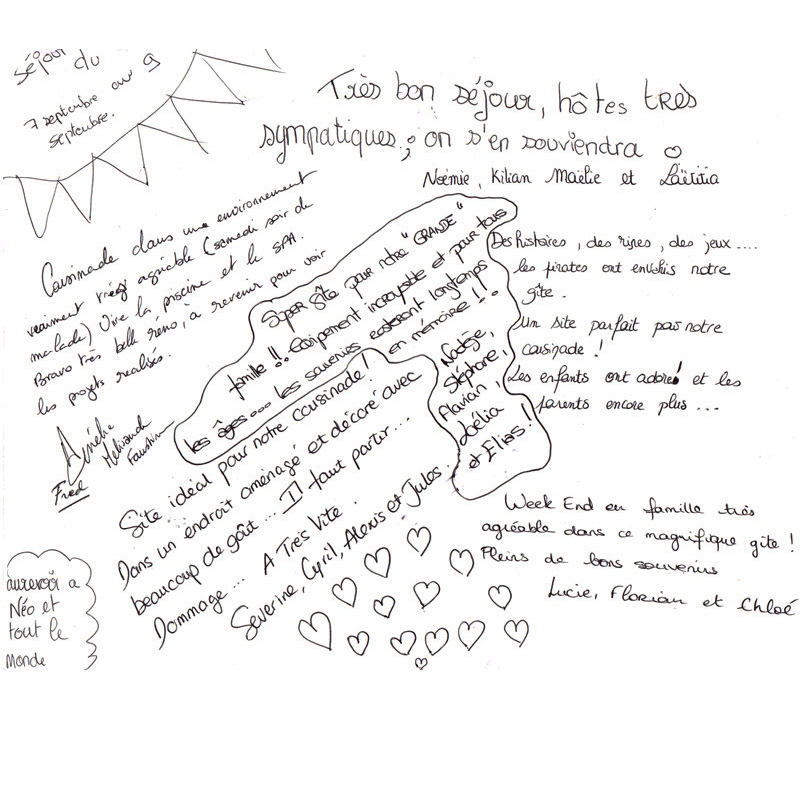 séjour du
7 septembre au 9
septembre.
Très bon séjour, hôtes très
sympatiques ; on s'en souviendra
Noémie, Kilian Maëlie et Laëtitia
Cousinade dans une environnement
vraiment très agréable (samedi soir de
malade) Vive la piscine et le SPA.
Bravo très belle reno, à revenir pour voir
les projets realisés.
Amélie
Fred
Faustin
Super Site pour notre "GRANDE"
famille !! Equipement incroyable et pour tous
les âges... les souvenirs resteront longtemps
en mémoire !!
Nadège,
Stéphane,
Flavian,
Lélia
et Elias !
Des histoires, des rires, des jeux ....
les pirates ont envahis notre
gîte.
Un site parfait pour notre
cousinade !
Les enfants ont adoré ! et les
parents encore plus ...
Site idéal pour notre cousinade !
Dans un endroit aménagé et décoré avec
beaucoup de goût ... Il faut partir ...
Dommage ... A Très Vite.
Séverine, Cyril, Alexis et Jules.
Week End en famille très
agréable dans ce magnifique gite !
Pleins de bons souvenirs
Lucie, Florian et Chloé
aurevoir a
Néo et
tout le
monde